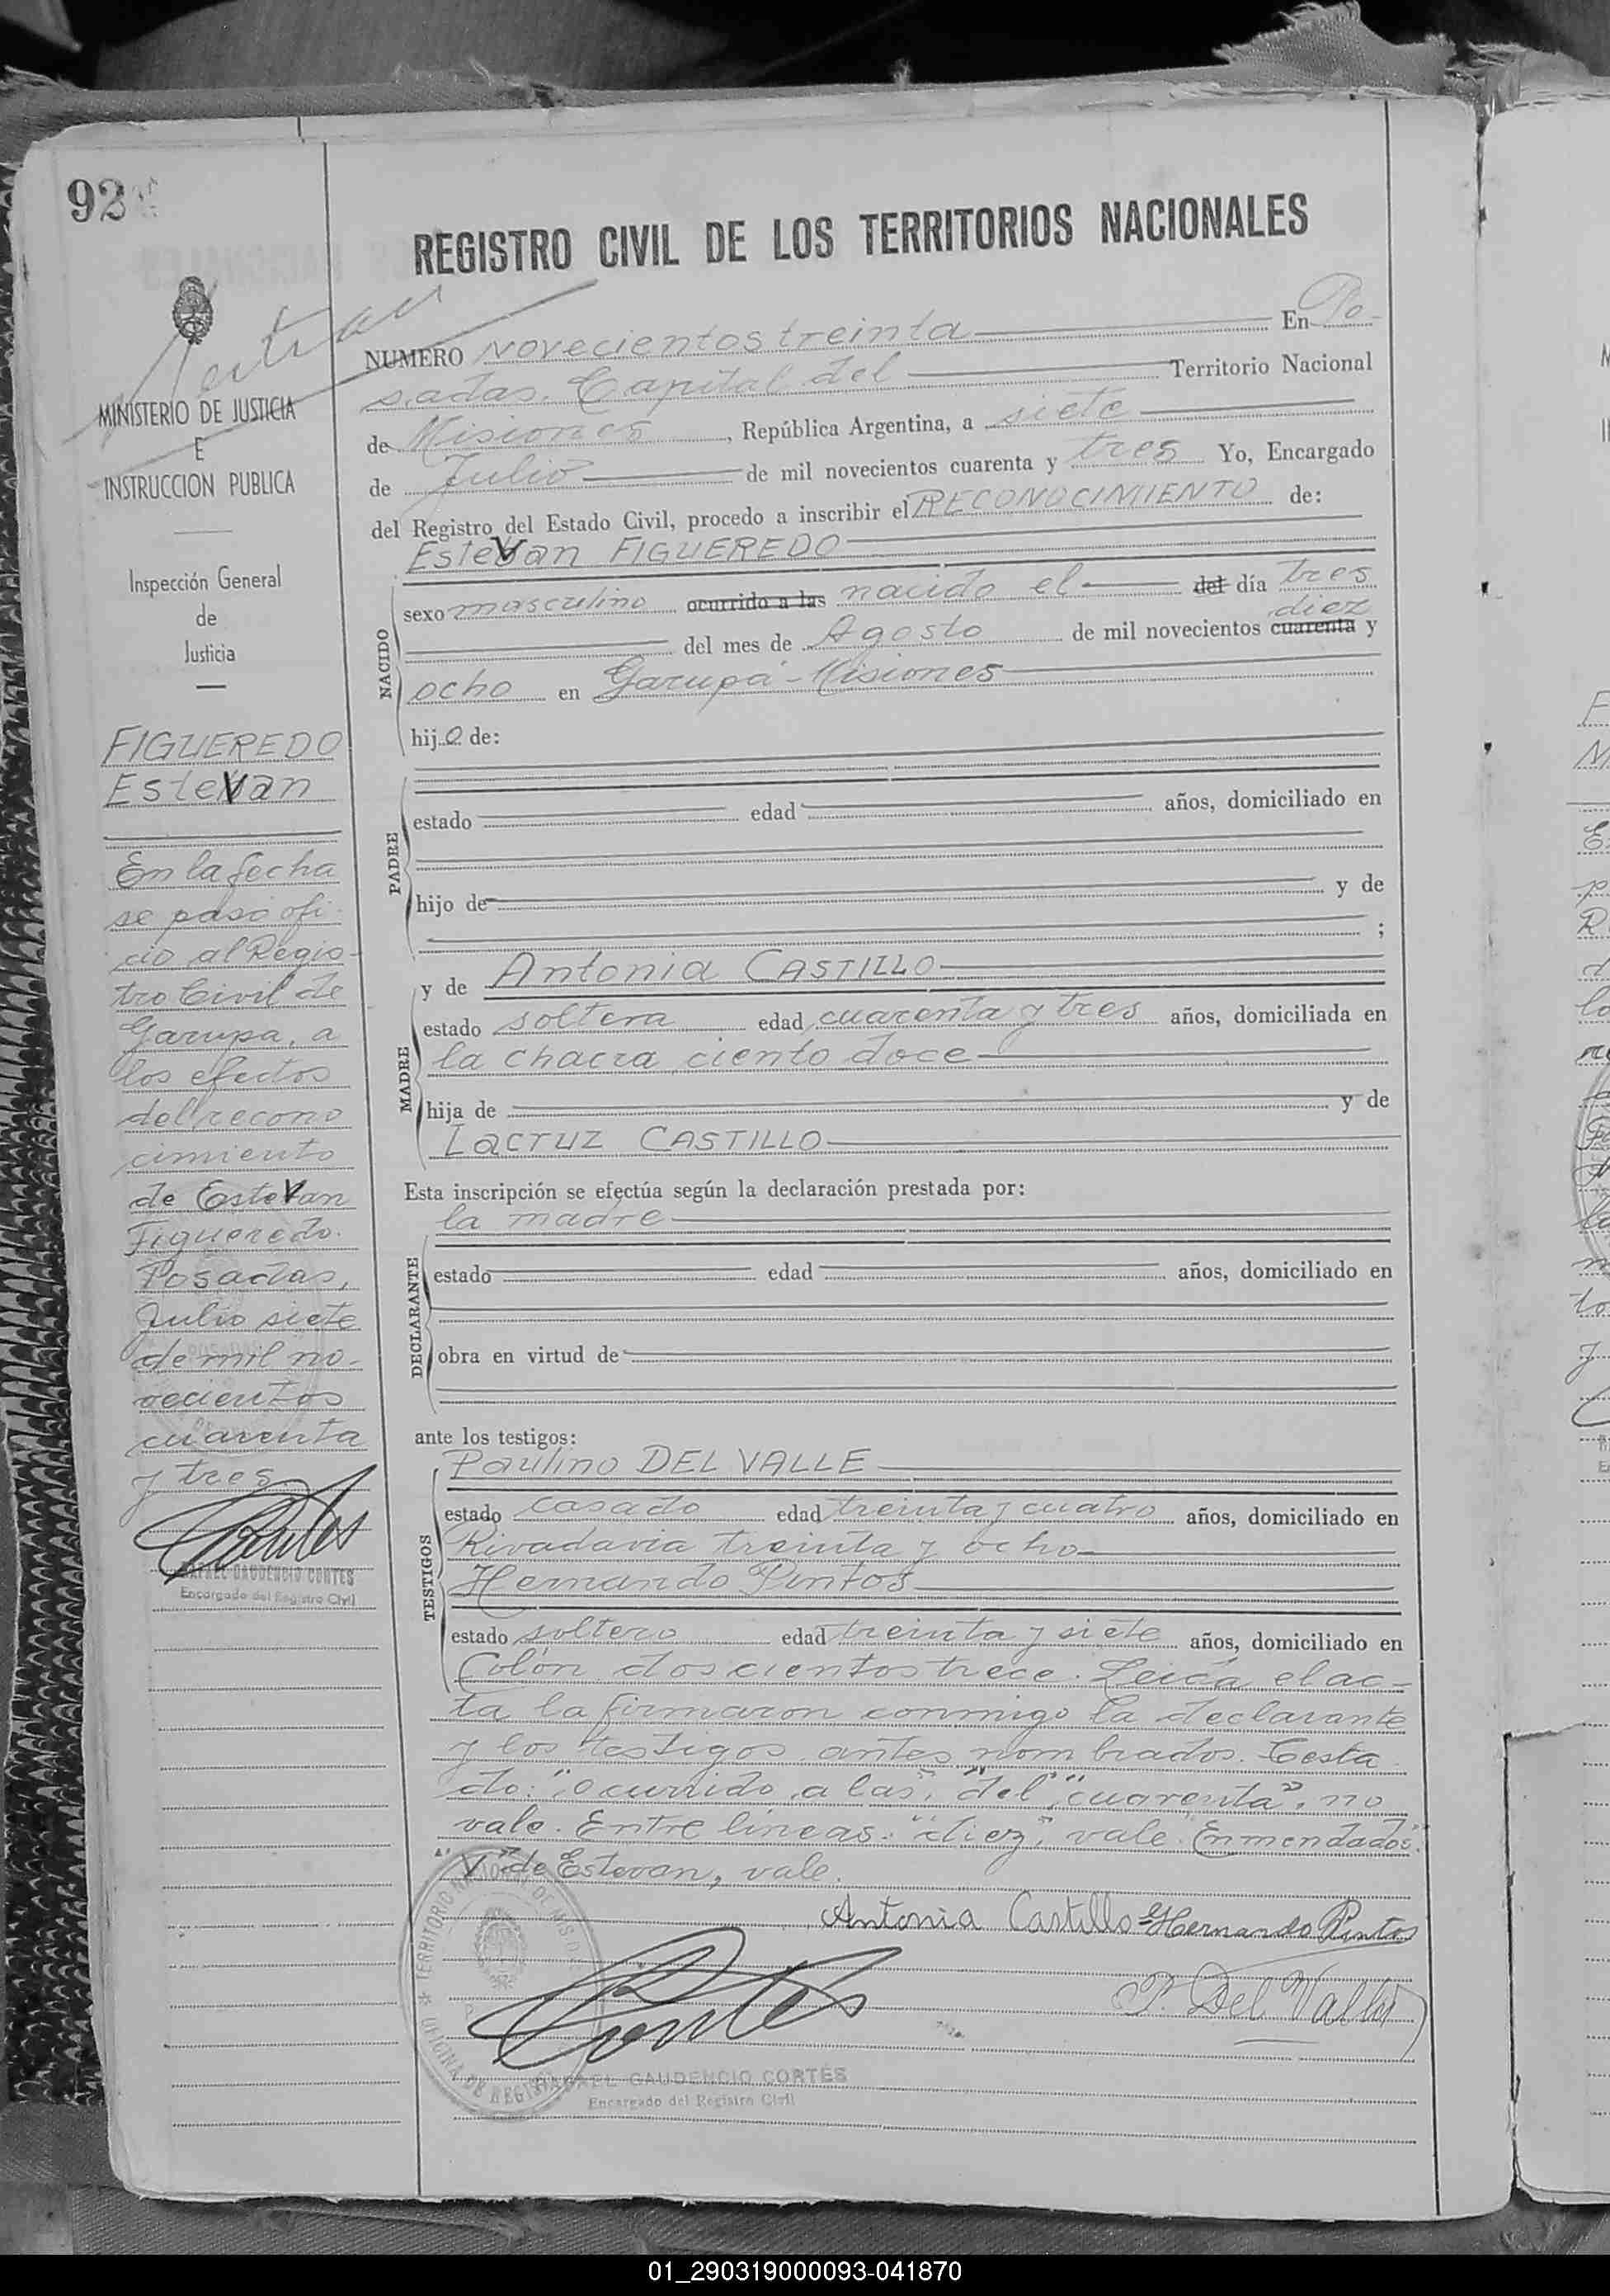 92
REGISTRO CIVIL DE LOS TERRITORIOS NACIONALES
MINISTERIO DE JUSTICIA
E
INSTRUCCION PUBLICA
Inspección General
de
Justicia
FIGUEREDO
Estevan
En la fecha
se pasó ofi-
cio al Regis-
tro Civil de
Garupa, a
los efectos
del recono
cimiento
de Estevan
Figueredo.
Posadas,
Julio siete
de mil no-
vecientos
cuarenta
y tres.
RAFAEL GAUDENCIO CORTES
Encargado del Registro Civil
NUMERO Novecientos treinta En Po-
sadas. Capital del Territorio Nacional
de Misiones, República Argentina, a siete
de Julio de mil novecientos cuarenta y tres Yo, Encargado
del Registro del Estado Civil, procedo a inscribir el RECONOCIMIENTO de:
Estevan FIGUEREDO
NACIDO
sexo masculino ocurrido a las nacido el del día tres
diez
del mes de Agosto de mil novecientos cuarenta y
ocho en Garupá - Misiones
hijo de:
PADRE
estado edad años, domiciliado en
hijo de y de
;
y de Antonia CASTILLO
MADRE
estado soltera edad cuarenta y tres años, domiciliada en
la chacra ciento doce
hija de y de
Lacruz CASTILLO
Esta inscripción se efectúa según la declaración prestada por:
la madre
DECLARANTE
estado edad años, domiciliado en
obra en virtud de
ante los testigos:
Paulino DEL VALLE
TESTIGOS
estado casado edad treinta y cuatro años, domiciliado en
Rivadavia treinta y ocho
Hernando Pintos
estado soltero edad treinta y siete años, domiciliado en
Colón doscientos trece. Leída el ac-
ta la firmaron conmigo la declarante
y los testigos antes nombrados. Testa
do: "ocurrido a las", "del", "cuarenta", no
vale. Entre líneas: "diez", vale. Enmendados:
"V" de Estevan, vale.
Antonia Castillo Hernando Pintos
P. Del Valle
Cortes
RAFAEL GAUDENCIO CORTÉS
Encargado del Registro Civil
01_290319000093-041870